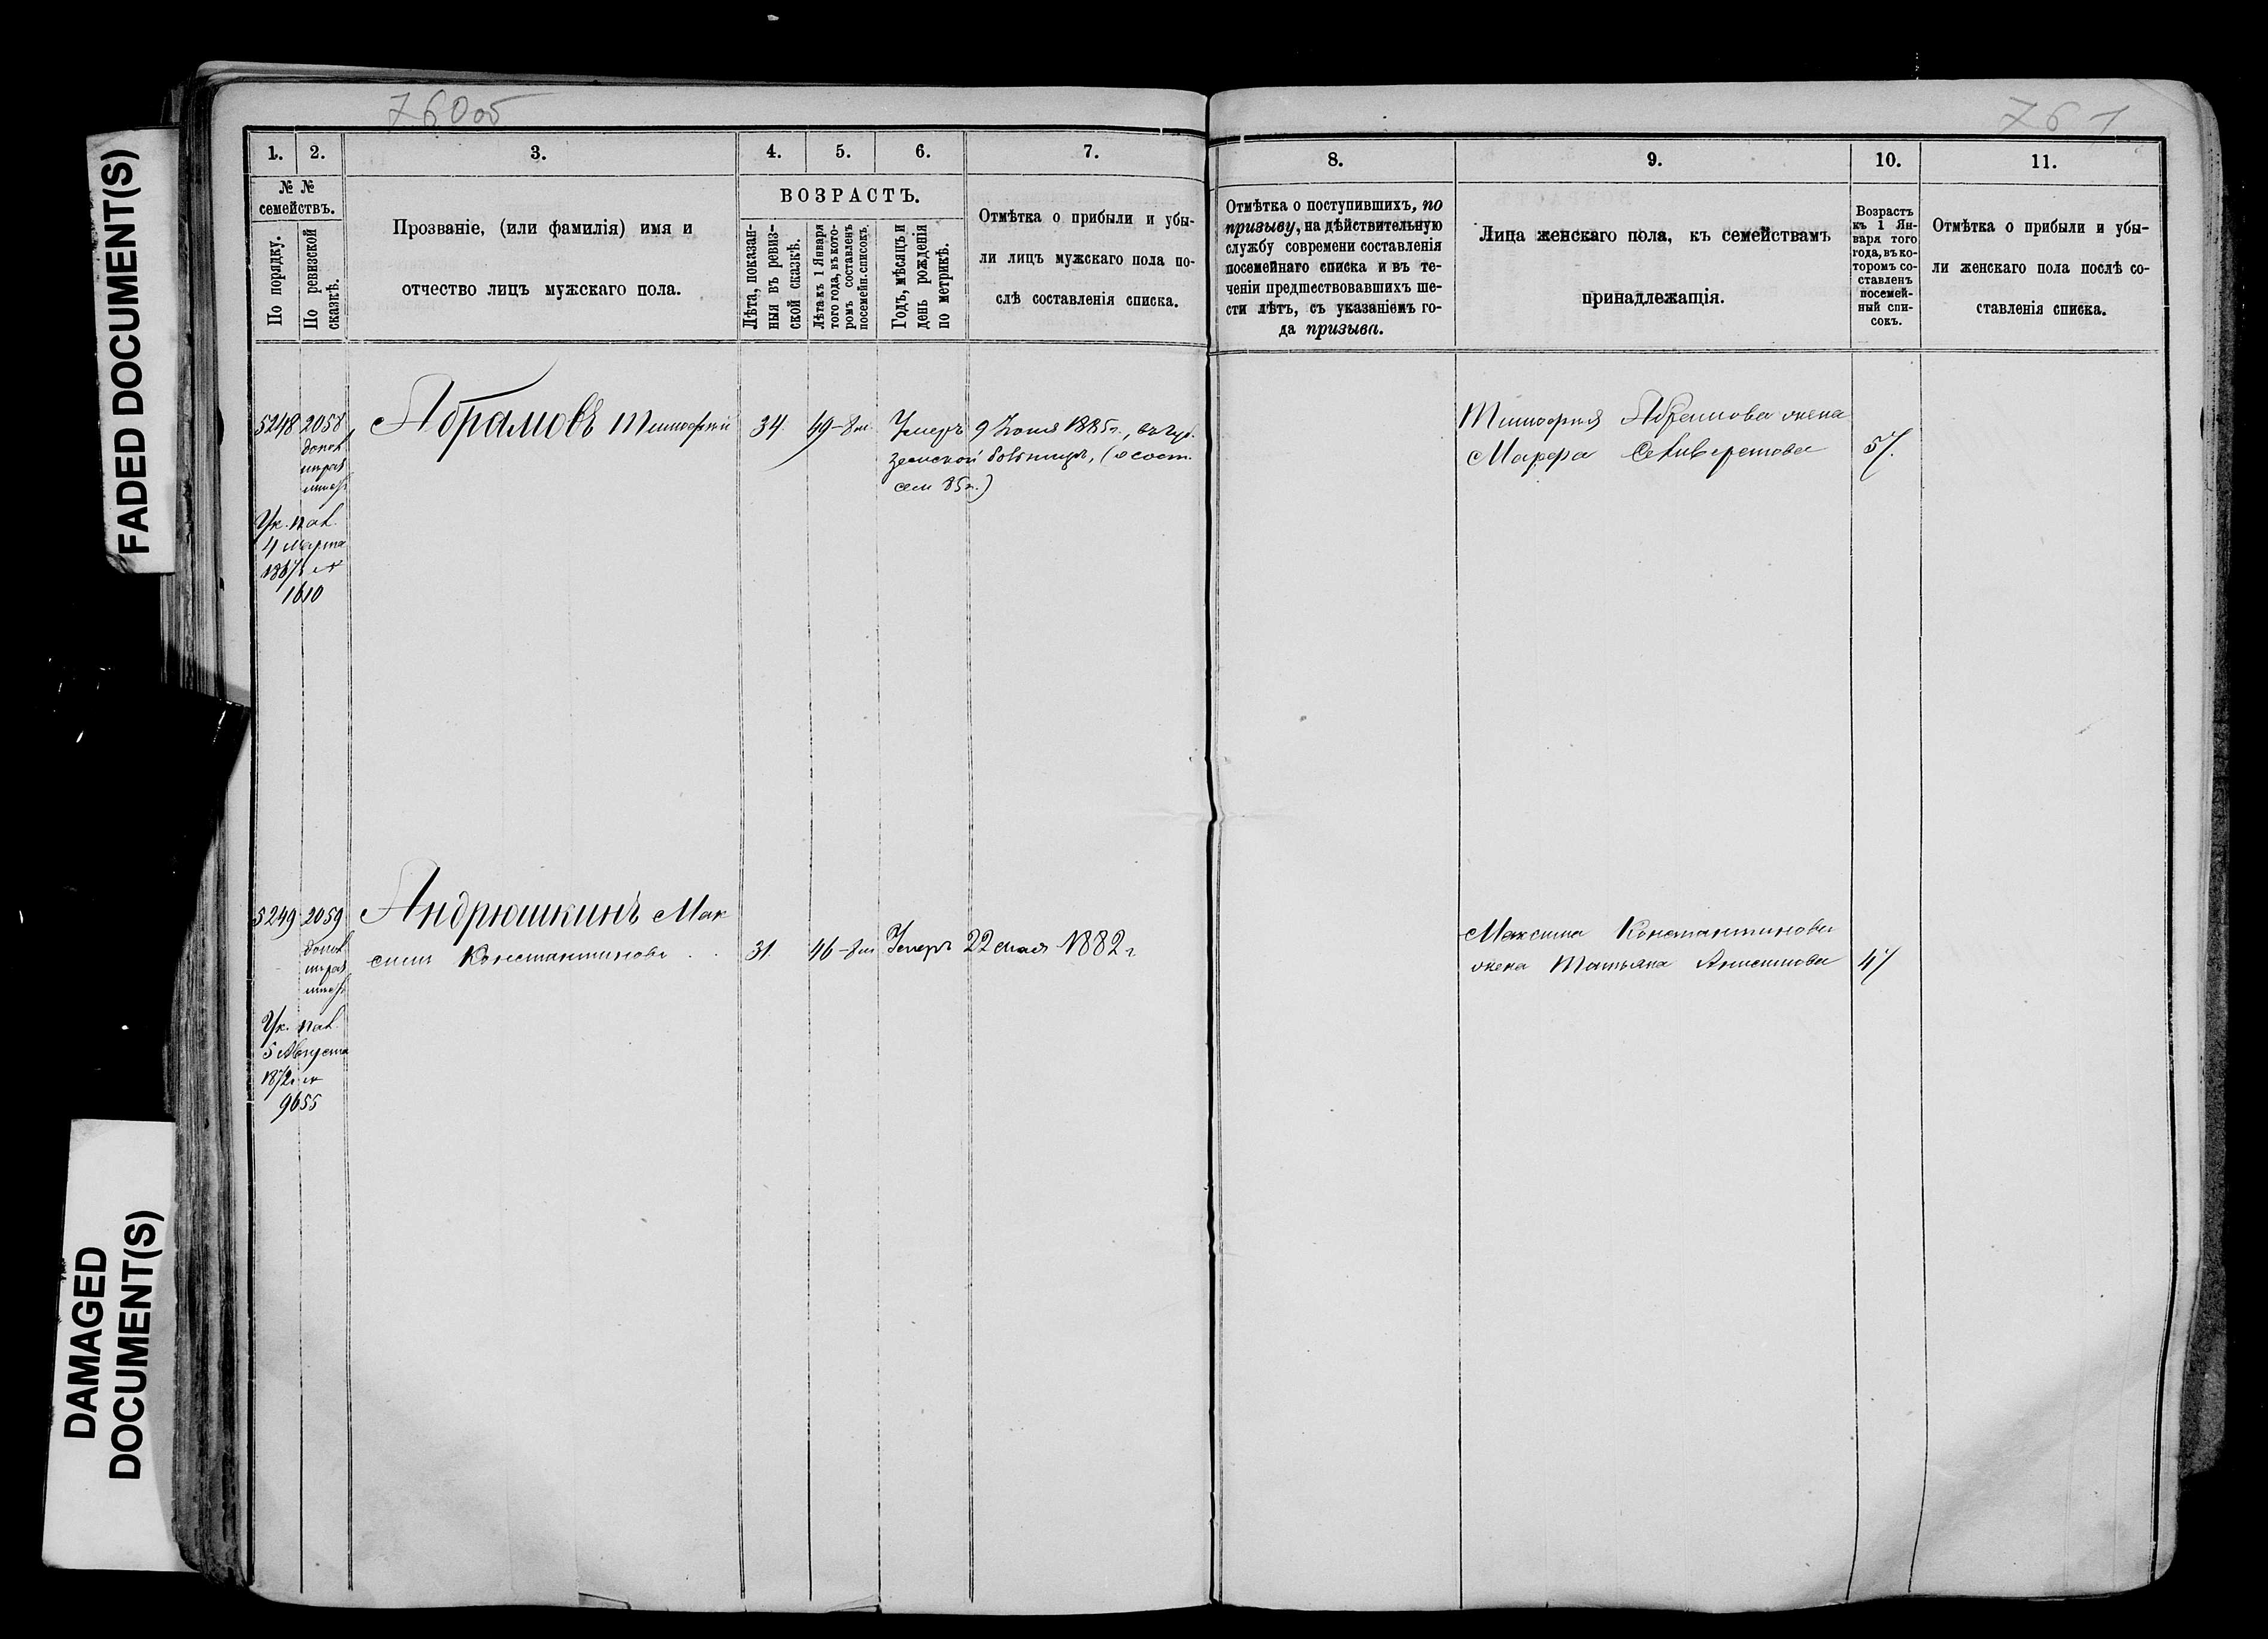 FADED DOCUMENT(S)
DAMAGED
DOCUMENT(S)
760об
1. 2. 3. 4. 5. 6. 7.
№ №
семействъ.
По порядку.
По ревизской
сказкѣ.
Прозваніе, (или фамилія) имя и
отчество лицъ мужскаго пола.
ВОЗРАСТЪ.
Лѣта, показан-
ныя въ ревиз-
ской сказкѣ.
Лѣта къ 1 Января
того года, въ кото-
ромъ составленъ
посемейн. списокъ.
Годъ, мѣсяцъ и
день рожденія
по метрикѣ.
Отмѣтка о прибыли и убы-
ли лицъ мужскаго пола по-
слѣ составленія списка.
5248 2058 Абрамовъ Тимофей 34. 49-8м. Умеръ 9 Іюня 1885г., въ губ.
земской больницѣ, (
сем 85г.)
допол.
Ук. пал.
4 марта
1610
5249 2059 Андрюшкинъ Мак
симъ Константиновъ 31. 46-8м Умеръ 22 мая 1882г
допол.
Ук. пал.
5 Августа
1872г №
9655
761
8. 9. 10. 11.
Отмѣтка о поступившихъ, по
призыву, на дѣйствительную
службу современи составленія
посемейнаго списка и въ те-
ченіи предшествовавшихъ ше-
сти лѣтъ, съ указаніемъ го-
да призыва.
Лица женскаго пола, къ семействамъ
принадлежащія.
Возрастъ
къ 1 Ян-
варя того
года, въ ко-
торомъ со-
ставленъ
посемей-
ный спи-
сокъ.
Отмѣтка о прибыли и убы-
ли женскаго пола послѣ со-
ставленія списка.
Тимофея Абрамова жена
Марфа Селиверстова 57.
Максима Константинова
жена Татьяна Анисимова 47